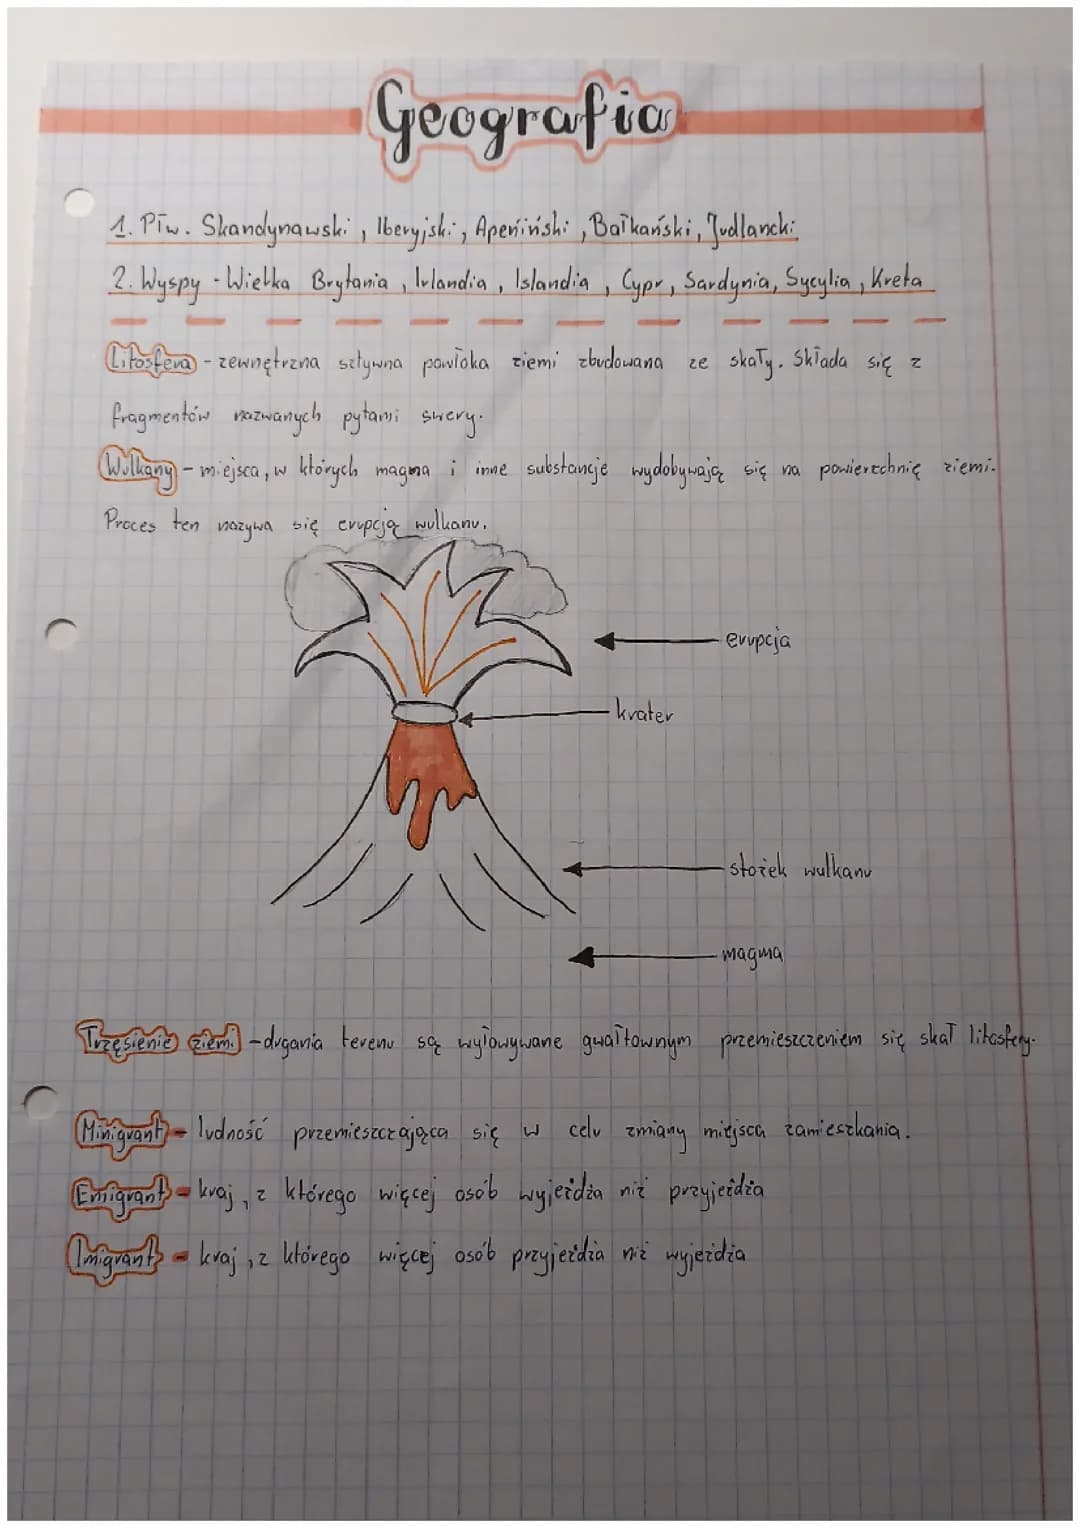 Geografia
1. Płw. Skandynawski, Iberyjski, Apeniński, Bałkański, Judlancki
2. Wyspy - Wielka Brytania, Irlandia, Islandia, Cypr, Sardynia, Sycylia, Kreta
Litosfera - zewnętrzna sztywna powłoka ziemi zbudowana ze skały. Składa się z
fragmentów nazwanych pytami swery.
Wulkany - miejsca, w których magma i inne substancje wydobywają się na powierzchnię ziemi.
Proces ten nazywa się erupcją wulkanu.
erupcja
krater
stożek wulkanu
magma
Trzęsienie ziemi - drgania terenu są wyłowywane gwałtownym przemieszczeniem się skał litosfery.
Minigrant - ludność przemieszczająca się w celu zmiany miejsca zamieszkania.
Emigrant - kraj, z którego więcej osób wyjeżdża niż przyjeżdża
Imigrant - kraj, z którego więcej osób przyjeżdża niż wyjeżdża